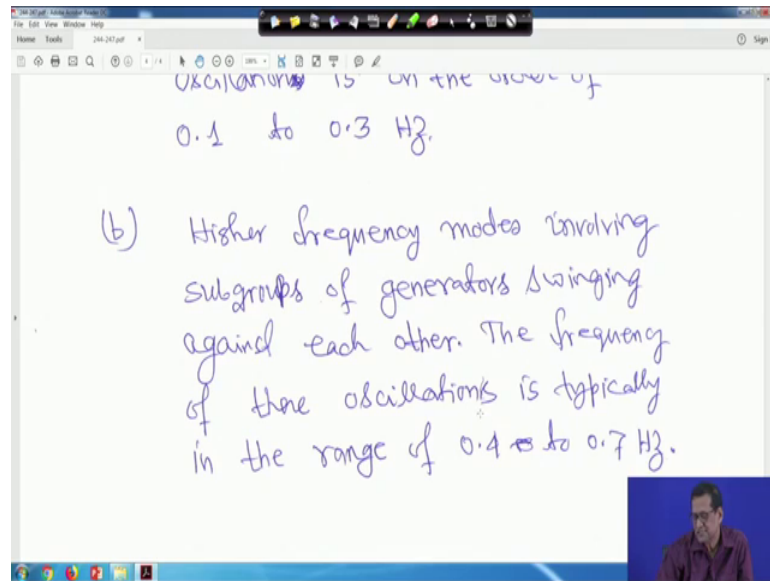 244-247.pdf - Adobe Acrobat Reader DC
File Edit View Window Help
Home Tools 244-247.pdf × Sign
4 / 4
oscillations is on the order of
0.1 to 0.3 Hz.
(b) Higher frequency modes involving
subgroups of generators swinging
against each other. The frequency
of these oscillations is typically
in the range of 0.4 to 0.7 Hz.